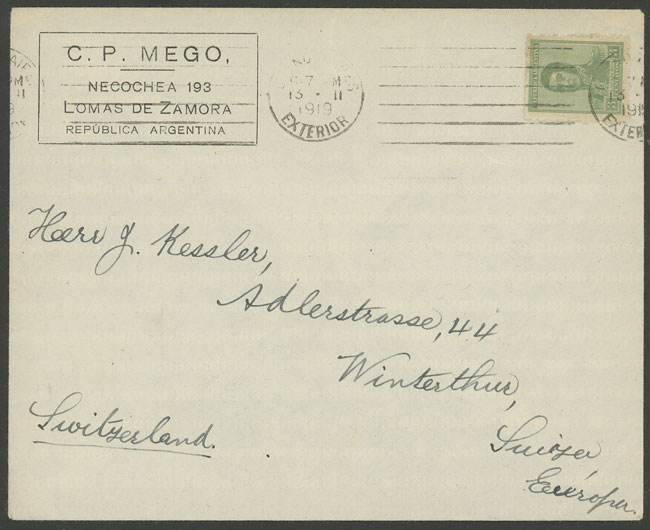 C. P. MEGO,
NECOCHEA 193
LOMAS DE ZAMORA
REPÚBLICA ARGENTINA
13 · II
1919
EXTERIOR
Herr J. Kessler,
Adlerstrasse, 44
Winterthur,
Switzerland.
Suiza
Európa